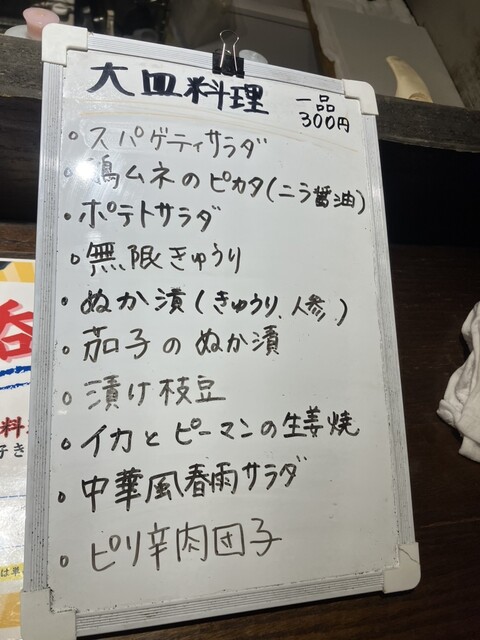 大皿料理
一品
300円
・スパゲティサラダ
・鶏ムネのピカタ(ニラ醤油)
・ポテトサラダ
・無限きゅうり
・ぬか漬(きゅうり、人参)
・茄子のぬか漬
・漬け枝豆
・イカとピーマンの生姜焼
・中華風春雨サラダ
・ピリ辛肉団子
呑
料
好き
は単